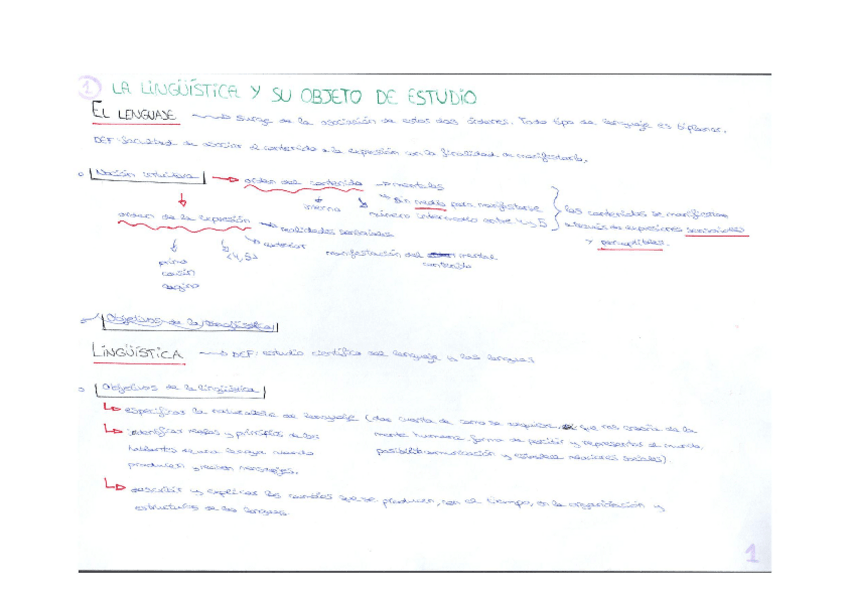 1 LA LINGÜÍSTICA Y SU OBJETO DE ESTUDIO
EL LENGUAJE → Surge de la asociación de estos dos órdenes. Todo tipo de lenguaje es biplanar.
DEF: facultad de asociar el contenido a la expresión con la finalidad de manifestarlo.
Noción intuitiva → orden del contenido → mentales
interno
sin medio para manifestarse
número intermedio entre 4 y 5
los contenidos se manifiestan
a través de expresiones sensoriales
y perceptibles.
orden de la expresión → realidades sensoriales
exterior
manifestación del mental
contenido
primo
<4,5>
Objetivos de la lingüística
LINGÜÍSTICA → DEF: estudio científico del lenguaje y las lenguas
Objetivos de la lingüística
especificar la naturaleza de lenguaje (dar cuenta de cómo se adquiere, qué nos enseña de la
mente humana, forma de percibir y representar el mundo,
posibilita comunicación y establece relaciones sociales).
identificar reglas y principios de los
hablantes de una lengua cuando
producen y reciben mensajes.
describir y explicar los cambios que se producen, con el tiempo, en la organización y
estructura de las lenguas.
1